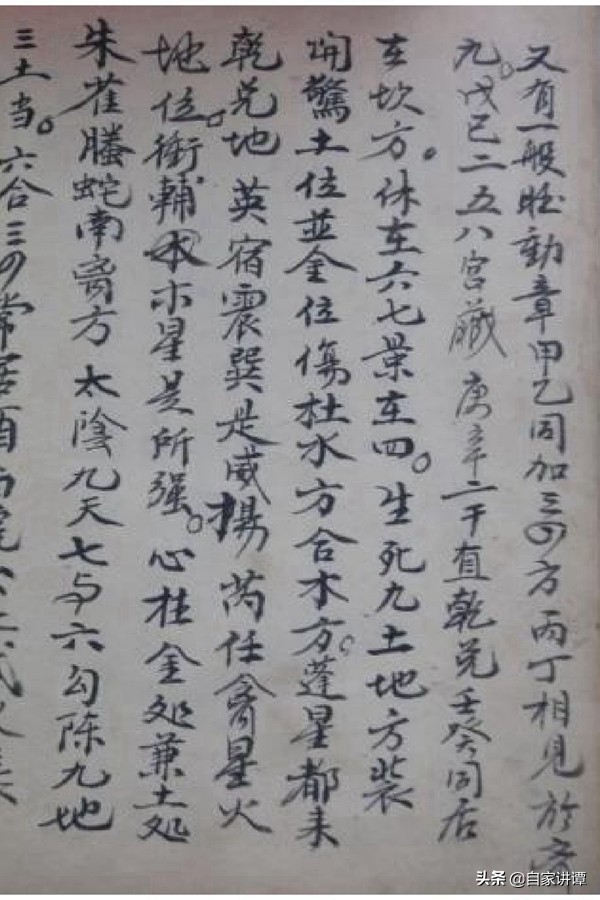 又有一般旺動章甲乙同加三四方丙丁相見於离
九。戊己二五八宮藏庚辛二干直乾兑壬癸同居
在坎方。休在六七景在四。生死九土地方装
開驚土位並金位傷杜水方合木方。蓬星都来
乾兑地英宿震巽是威揚芮任禽星火
地位。衝輔木星是所强。心柱金処兼土処
朱雀螣蛇南离方太陰九天七与六勾陈九地
三土当。六合三四常居酉
头条 @自家讲谭